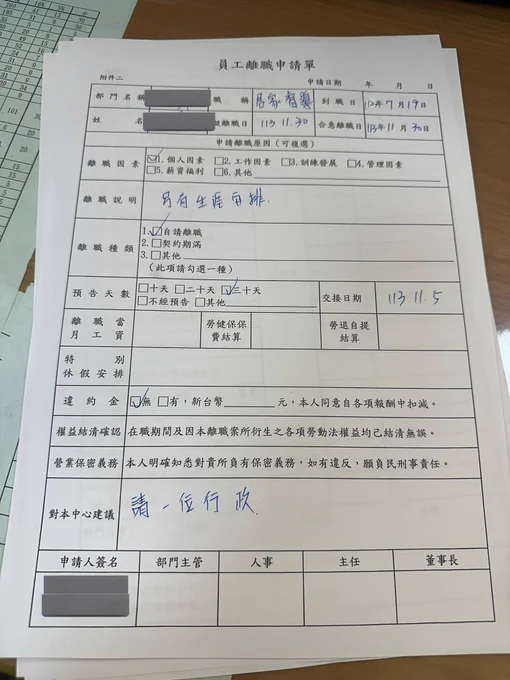 員工離職申請單
附件二 申請日期 年 月 日
部門名稱 職稱 居家督導 到職日 112年7月19日
姓名 擬離職日 113.11.30 合意離職日 113年11月30日
申請離職原因(可複選)
離職因素 ☑1.個人因素 □2.工作因素 □3.訓練發展 □4.管理因素
□5.薪資福利 □6.其他
離職說明 另有生涯安排.
離職種類 1.☑自請離職
2.□契約期滿
3.□其他
(此項請勾選一種)
預告天數 □十天 □二十天 ☑三十天 交接日期 113.11.5
□不經預告 □其他
離職當月工資 勞健保保費結算 勞退自提結算
特別休假安排
違約金 ☑無 □有,新台幣 元,本人同意自各項報酬中扣減。
權益結清確認 在職期間及因本離職案所衍生之各項勞動法權益均已結清無誤。
營業保密義務 本人明確知悉對貴所負有保密義務,如有違反,願負民刑事責任。
對本中心建議 請一位行政.
申請人簽名 部門主管 人事 主任 董事長